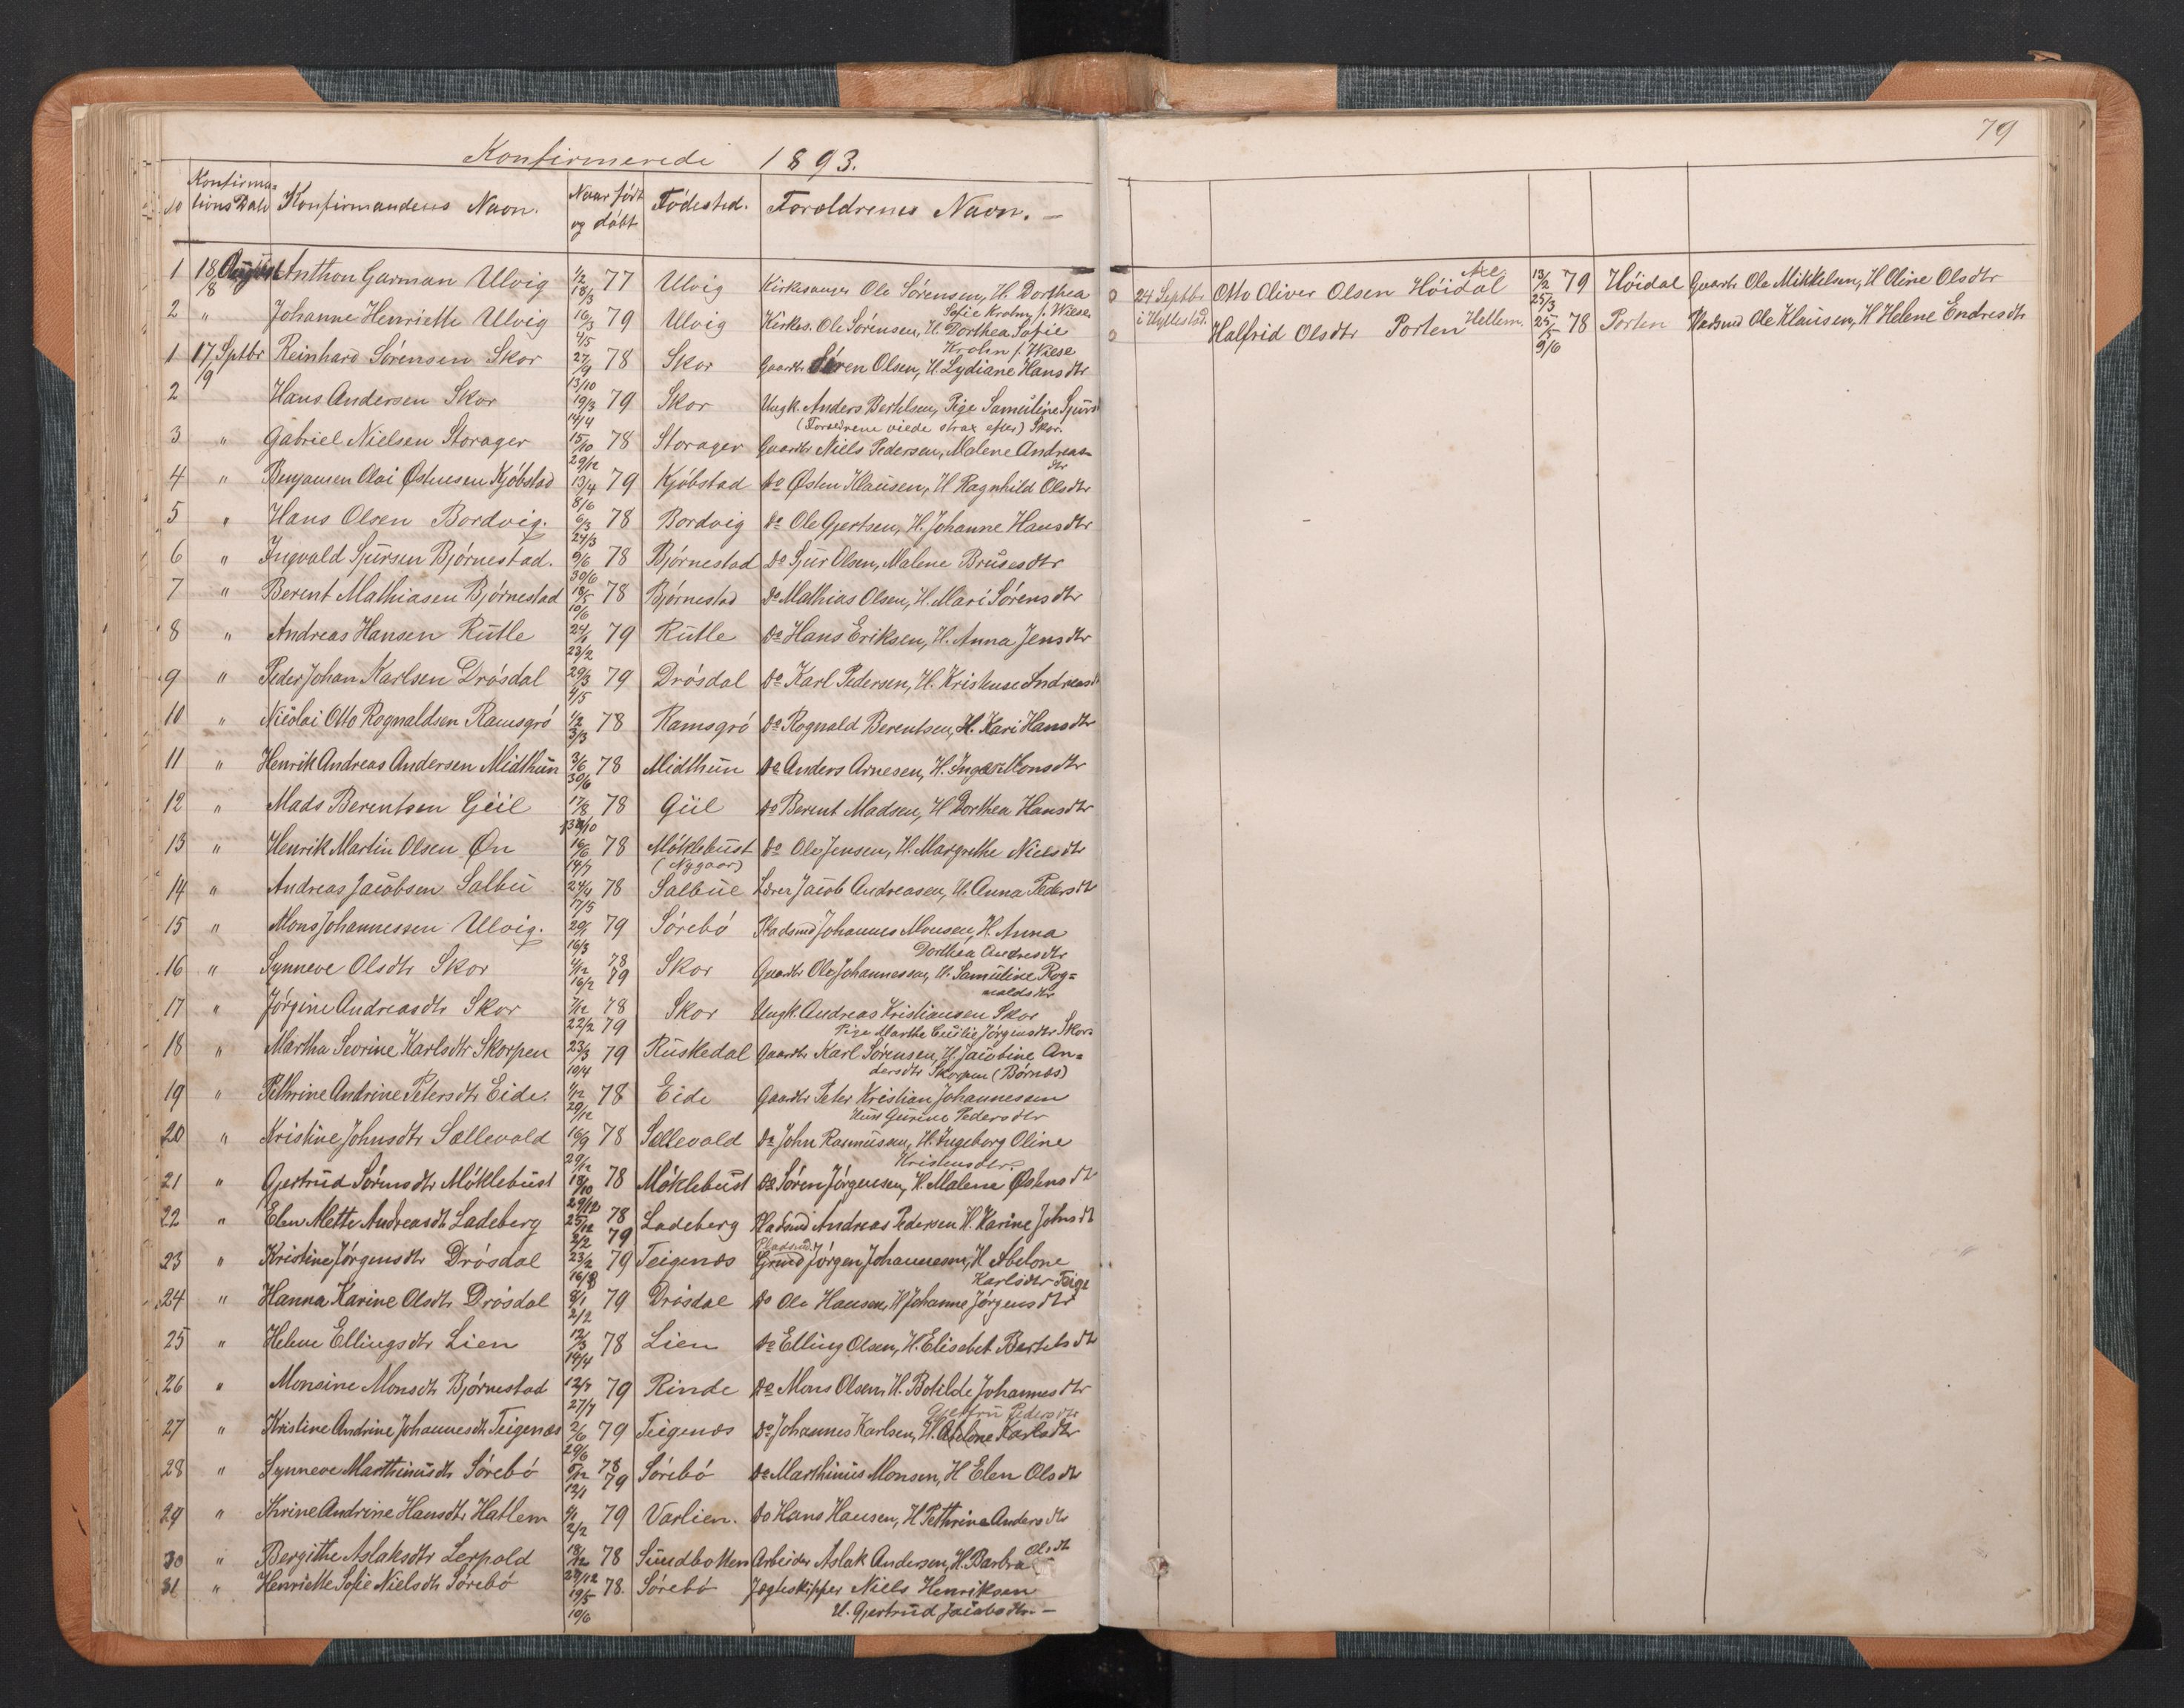 Konfirmerede 1893.
79
No Konfirma-
tions Dato Konfirmandens Navn. Naar født
og døbt Fødested. Forældrenes Navn. —
1 18/8 August Anthon Garman Ulvig 1/2 18/3 77 Ulvig Kirkesanger Ole Sørensen, H. Dorthea
Sofie Krohn f. Wiese
2 " Johanne Henriette Ulvig 16/3 4/5 79 Ulvig Kirkes. Ole Sørensen, H. Dorthea Sofie
Krohn f. Wiese
1 17/9 Sptbr Reinhard Sørensen Skor 27/9 13/10 78 Skor Gaardbr Søren Olsen, H. Lydiane Hansdtr
2 Hans Andersen Skor 19/3 14/4 79 Skor Ungk. Anders Bertelsen, Pige Samuline Sjurs
(Forældrene viede strax efter) Skor.
3 " Gabriel Nielsen Storager 15/10 29/12 78 Storager Gaardbr Niels Pedersen, Malene Andreas-
dtr
4 " Benjamen Olai Østensen Kjøbstad 13/4 8/6 79 Kjøbstad Do Østen Klausen, H Ragnhild Olsdtr
5 " Hans Olsen Bordvig. 6/3 24/3 78 Bordvig Do Ole Gjertsen, H. Johanne Hansdtr
6 " Ingvald Sjursen Bjørnestad. 9/6 30/6 78 Bjørnestad Do Sjur Olsen, Malene Brusesdtr
7 " Berent Mathiasen Bjørnestad 18/5 10/6 78 Bjørnestad Do Mathias Olsen, H. Mari Sørensdtr
8 " Andreas Hansen Rutle 24/1 23/2 79 Rutle Do Hans Eriksen, H. Anna Jensdtr
9 " Peder Johan Karlsen Drøsdal 29/3 4/5 79 Drøsdal Do Karl Pedersen, H. Kristense Andreasd
10 " Nicolai Otto Rognaldsen Ramsgrø 1/2 3/3 78 Ramsgrø Do Rognald Berentsen, H. Kari Hansdtr
11 " Henrik Andreas Andersen Midthun 3/6 30/6 78 Midthun Do Anders Arnesen, H. Inger Monsdtr
12 " Mads Berentsen Giil 17/8 78 Giil Do Berent Madsen, H Dorthea Hansdtr
13 " Henrik Martin Olsen Øn 16/6 14/7 78 Møklebust Do Ole Jensen, H. Margrethe Nielsdtr
(Nygaar)
14 " Andreas Jacobsen Salbu 24/4 17/5 78 Salbue Lærer Jacob Andreasen, H. Anna Pedersdtr
15 " Mons Johannessen Ulvig. 29/1 16/3 79 Sørebø Pladsmd Johannes Monsen, H. Anna
Dorthea Andresdtr
16 " Synneve Olsdtr Skor 4/12 78 16/2 79 Skor Gaardbr Ole Johannessen, H. Samuline Rog-
naldsdtr
17 " Jørgine Andreasdtr Skor 7/12 78 22/2 79 Skor Ungk. Andreas Kristiansen Skor
Pige Marthe Cecilie Jørgensdtr Skor
18 " Martha Sevrine Karlsdtr Skorpen 23/3 10/4 79 Ruskedal Gaardbr Karl Sørensen, H. Jacobine An-
dersdtr Skorpen (Børnæs)
19 " Pethrine Andrine Petersdtr Eide. 1/12 29/12 78 Eide Gaardbr Peter Kristian Johannessen
Hust Gurine Pedersdtr
20 " Kristine Johnsdtr Sællevold 16/9 29/12 78 Sællevold Do John Rasmussen, H. Ingeborg Oline
Kristensdtr.
21 " Gjertrud Sørensdtr Møklebust 18/10 29/12 78 Møklebust Do Søren Jørgensen, H. Malene Østensdtr
22 " Elen Mette Andreasdtr Ladeberg 25/12 78 2/2 79 Ladeberg Pladsmd Andreas Pedersen H. Karine Johnsdtr
23 " Kristine Jørgensdtr Drøsdal 23/2 16/3 79 Teigenæs Pladsmd. Grmd Jørgen Johannesen, H Abelone
Karlsdtr Teige
24 " Hanna Karine Olsdtr Drøsdal 8/1 2/2 79 Drøsdal Do Ole Hansen, H Johanne Jørgensdtr
25 " Helene Ellingsdtr Lien 12/3 14/4 78 Lien Do Elling Olsen, H. Elisabet Bertelsdtr
26 " Monsine Monsdtr Bjørnestad 79 Rinde Do Mons Olsen, H. Botilde Johannesdtr
27 " Kristine Andrine Johannesdtr Teigenæs 2/6 29/6 79 Teigenæs Do Johannes Karlsen, H. Abelone Karlsdtr
Gjertru Pedersdtr
28 " Synneve Marthinusdtr Sørebø 5/12 78 12/1 79 Sørebø Do Marthinus Monsen, H Elen Olsdtr
29 " Thrine Andrine Hansdtr Hatlem 4/1 2/2 79 Varlien. Do Hans Hansen, H Pethrine Andersdtr
30 " Bergithe Aslaksdtr Lerpold 18/12 29/12 78 Sundbotten Arbeider Aslak Andersen, H. Barbra Olsdtr
31 " Henriette Sofie Nielsdtr Sørebø 19/5 10/6 78 Sørebø Jægteskipper Niels Henriksen
H. Gjertrud Jacobsdtr. —
0 24 Septbr Otto Oliver Olsen Høidal 13/2 25/3 79 Høidal Gaardbr Ole Mikkelsen, H Oline Olsdtr
i Hyllestad.
0 Halfrid Olsdtr Porten Hellem. 25/5 9/6 78 Porten Pladsmd Ole Klausen, H Helene Endresdtr